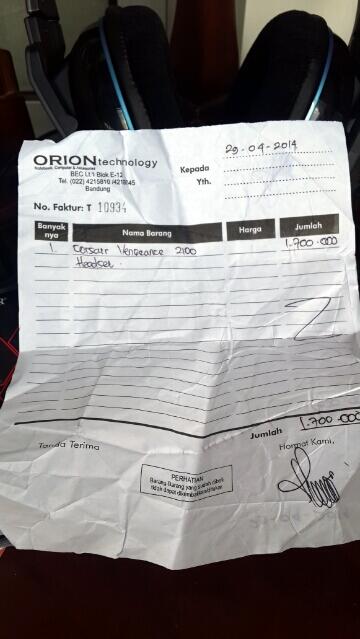 ORION technology
Notebook, Computer & Accessories
BEC Lt.1 Blok E-12
Tel. (022) 4215810 /4218145
Bandung
29-04-2014
Kepada
Yth.
No. Faktur: T 10934
Banyak nya Nama Barang Harga Jumlah
1. Corsair Vengeance 2100 1.700.000
Headset.
Jumlah 1.700.000
Tanda Terima Hormat Kami,
PERHATIAN
Barang-Barang yang sudah dibeli
tidak dapat dikembalikan/ditukar